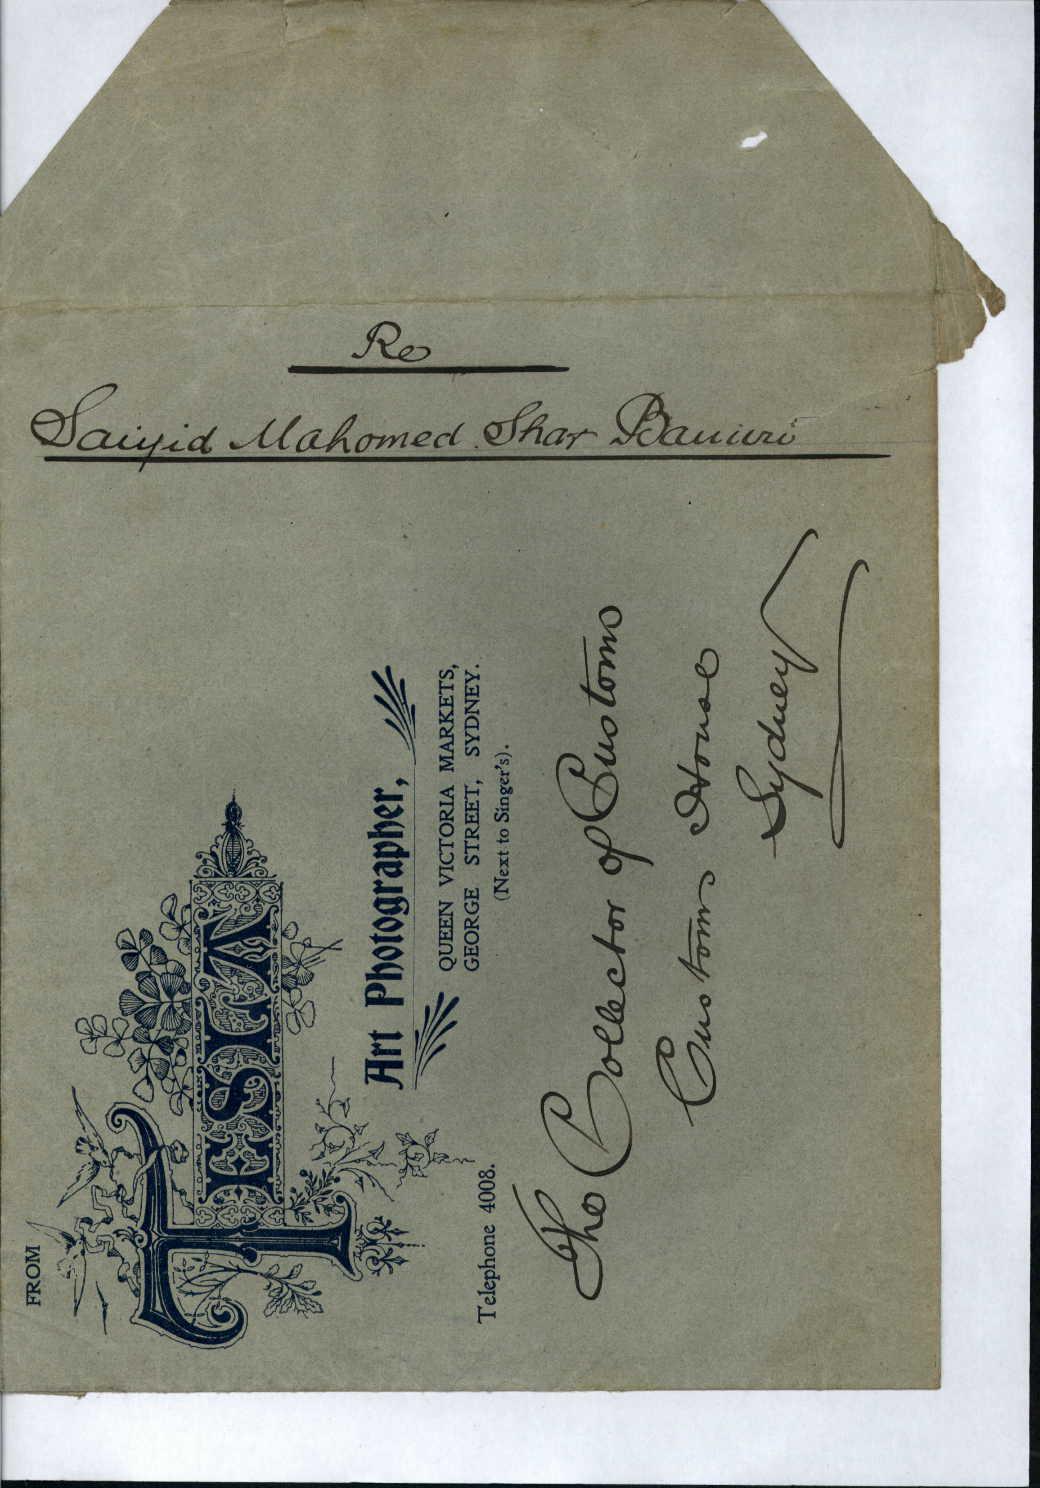 Re
Saiyid Mahomed Shar Banuri
FROM
TESLA
Art Photographer,
QUEEN VICTORIA MARKETS,
GEORGE STREET, SYDNEY.
(Next to Singer's).
Telephone 4008.
The Collector of Customs
Customs House
Sydney